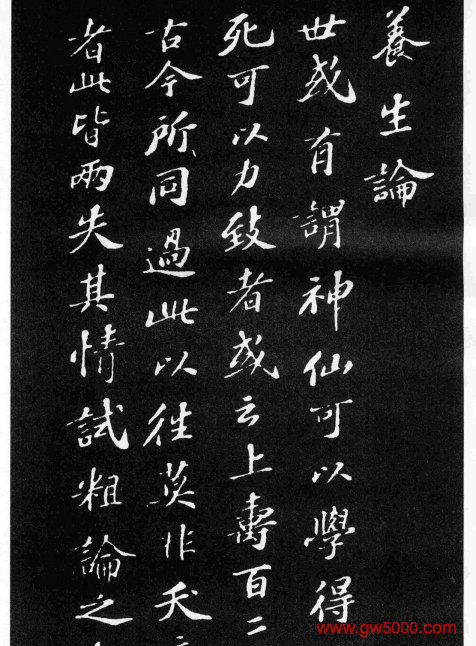 養生論
世或有謂神仙可以學得
死可以力致者或云上壽百二
古今所同過此以往莫非夭
者此皆兩失其情試粗論之
www.gw5000.com